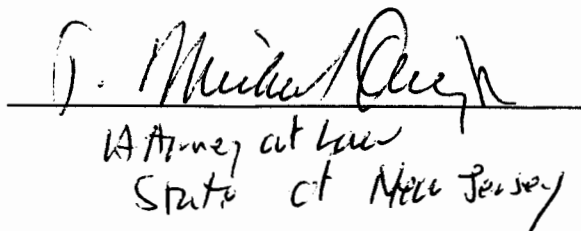 Michael
Attorney at Law
State of New Jersey